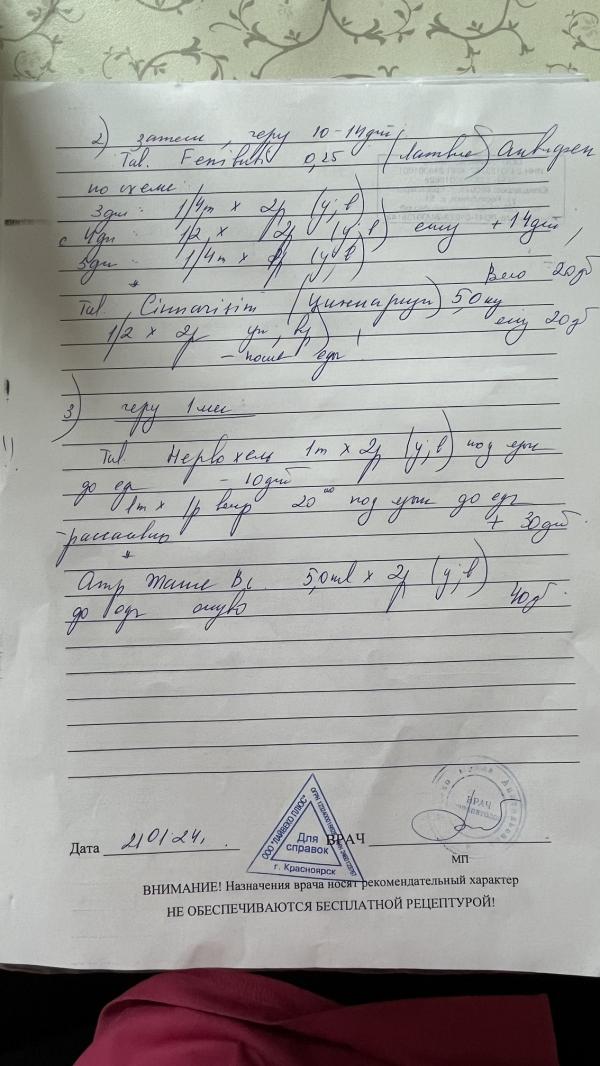 2) затем, через 10-14 дн
Tab. Fenibuti 0,25 (Латвия) Анвифен
по схеме:
3дн 1/4т х 2р (у; в)
с 4дн 1/2 х 2р (у; в) ещу +14дн,
5дн 1/4т х 2р (у; в)
Всего 20дн
* Tab. Cinnarizini (Циннаризин) 5,0
1/2 х 2р
- после еды!
3) через 1 мес
Tab. Нервохель 1т х 2р (у; в) под язык
до еды - 10дней
1т х 1р вечер 20°° под язык до еды
- рассасывать + 30дней
*
Амр Магне В6 5,0ml х 2р (у; в)
до еды 40дн
Дата 21.01.24.
ВРАЧ
МП
ООО "ЛАЙВЕКО ПЛЮС"
Для справок
г. Красноярск
ВРАЧ
ВНИМАНИЕ! Назначения врача носят рекомендательный характер
НЕ ОБЕСПЕЧИВАЮТСЯ БЕСПЛАТНОЙ РЕЦЕПТУРОЙ!